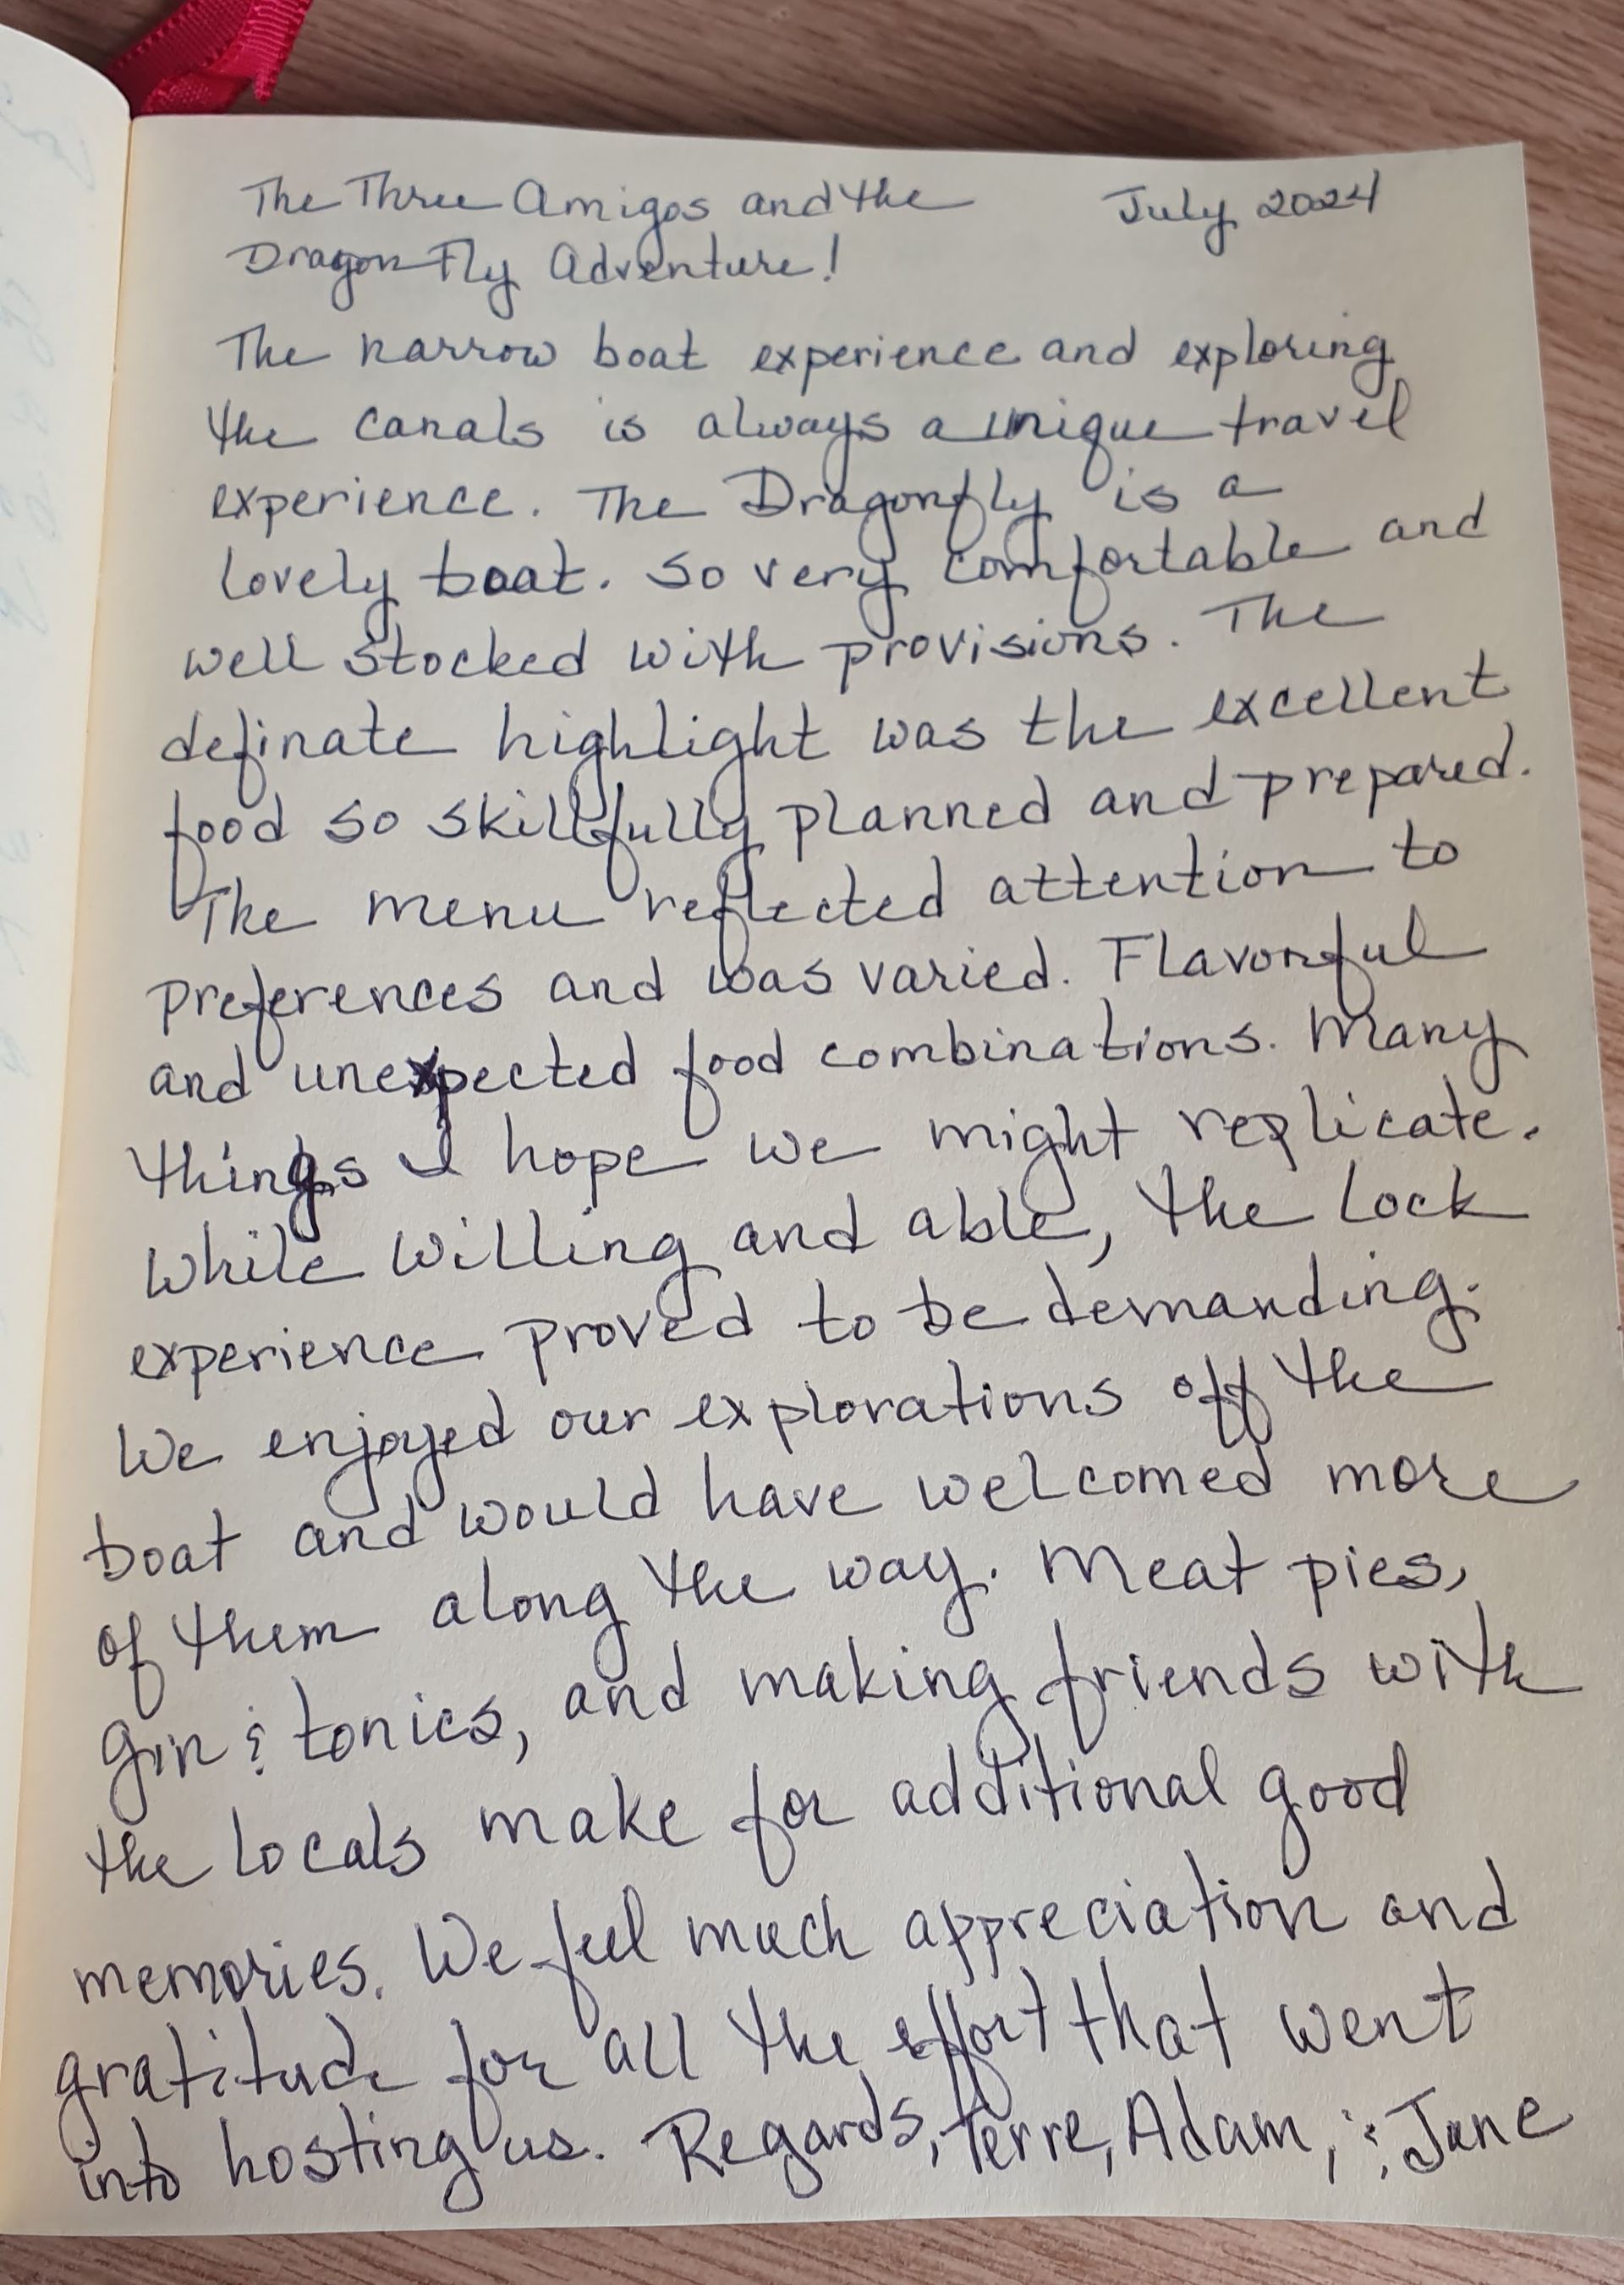 The Three Amigos and the July 2024
Dragon Fly Adventure!
The narrow boat experience and exploring
the canals is always a unique travel
experience. The Dragonfly is a
lovely boat. So very comfortable and
well stocked with provisions. The
definate highlight was the excellent
food so skillfully planned and prepared.
The menu reflected attention to
preferences and was varied. Flavorful
and unexpected food combinations. Many
things I hope we might replicate.
While willing and able, the lock
experience proved to be demanding.
We enjoyed our explorations off the
boat and would have welcomed more
of them along the way. Meat pies,
gin & tonics, and making friends with
the locals make for additional good
memories. We feel much appreciation and
gratitude for all the effort that went
into hosting us. Regards, Terre, Adam, & June